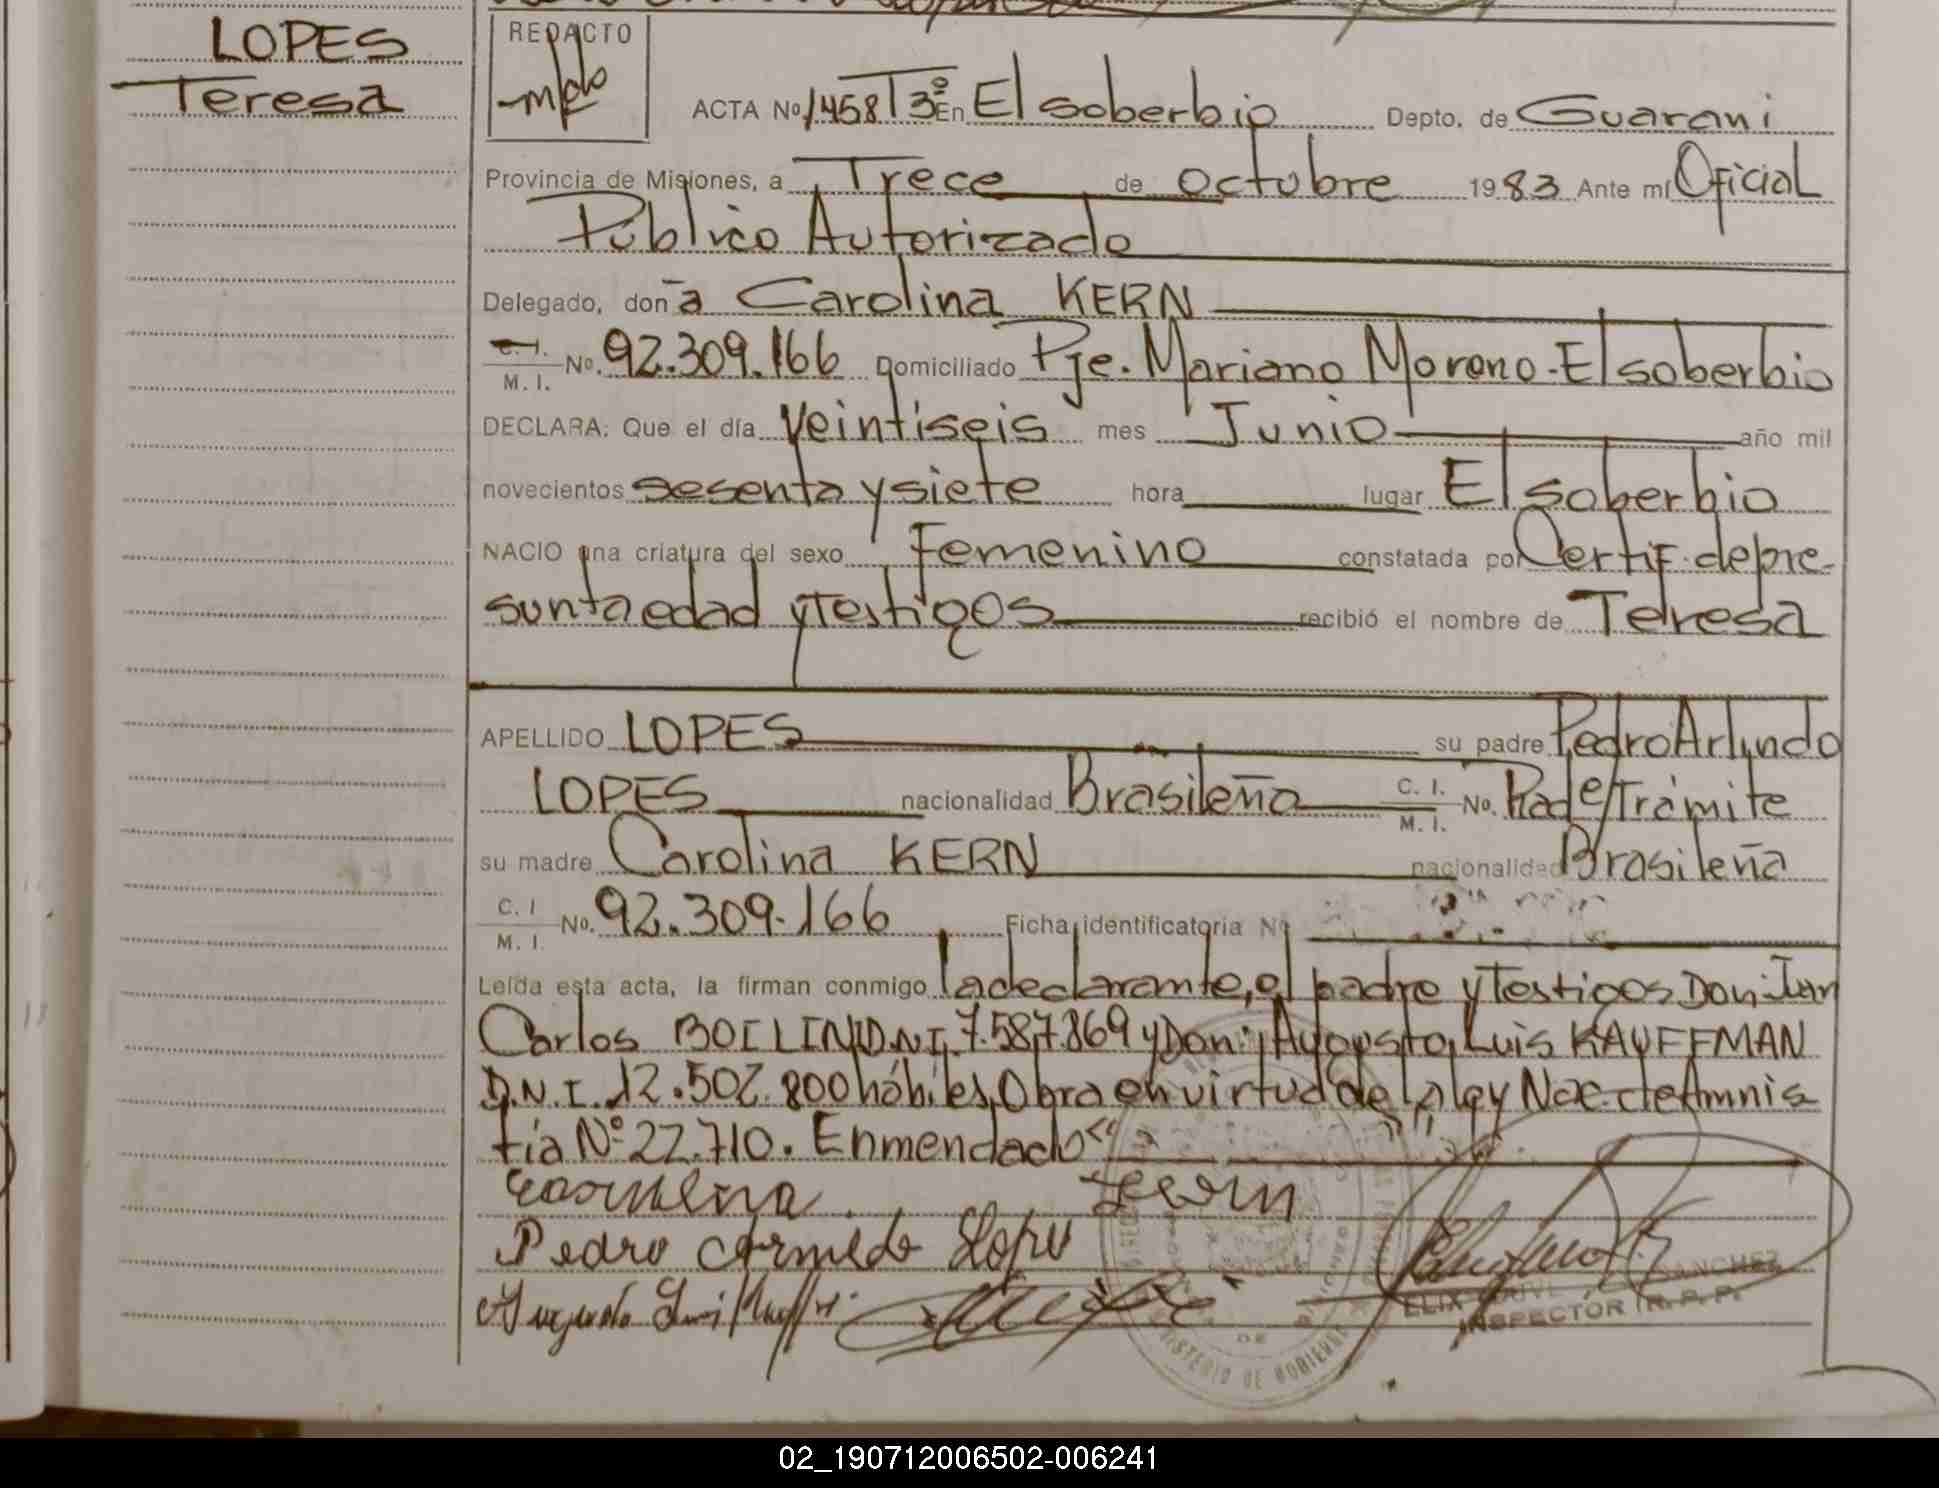 LOPES
Teresa
REDACTO
ACTA Nº 1458 T 3º En El soberbio Depto. de Guarani
Provincia de Misiones, a Trece de octubre 1983 Ante mí Oficial
Público Autorizado
Delegado, don a Carolina KERN
C. I. M. I. No. 92.309.166 Domiciliado Pje. Mariano Moreno - El soberbio
DECLARA: Que el día Veintiseis mes Junio año mil
novecientos sesenta y siete hora lugar El soberbio
NACIO una criatura del sexo Femenino constatada por Certif. de pre-
sunta edad y Testigos recibió el nombre de Teresa
APELLIDO LOPES su padre Pedro Arlindo
LOPES nacionalidad Brasileña C. I. M. I. No. Rad e/Trámite
su madre Carolina KERN nacionalidad Brasileña
C. I M. I. No. 92.309.166 Ficha identificatoria Nº
Leída esta acta, la firman conmigo la declarante, el padre y Testigos Don: Juan
Carlos D.N.I. 7.587.869 y Don: Augusto Luis KAUFFMAN
D.N.I. 12.502.800 hábiles, Obra en virtud de la ley Nac. de Amnis
tía Nº 22.710. Enmendado "
Kern
Pedro Lopes
Augusto Luis
SANCHEZ
INSPECTOR R. P. P.
MINISTERIO DE GOBIERNO
02_190712006502-006241